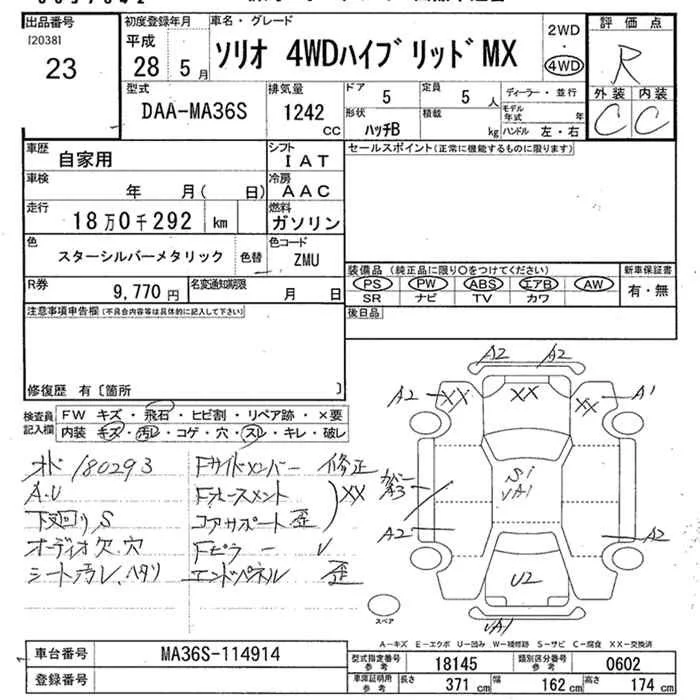 出品番号
120381
23
初度登録年月
平成
28 5月
車名・グレード
ソリオ 4WDハイブリッドMX
2WD
・
4WD
評価点
R
外装 内装
C C
型式
DAA-MA36S
排気量
1242
cc
ドア
5
定員
5 人
形状
ハッチB
積載
kg
ディーラー・並行
モデル年式 年
ハンドル 左・右
車歴
自家用
シフト
IAT
車検
年 月( 日)
冷房
AAC
走行
18万0千292 km
燃料
ガソリン
色
スターシルバーメタリック
色替
色コード
ZMU
R券
9,770 円
名変通知期限
月 日
セールスポイント(正常に機能するものに限ります)
装備品 (純正品に限り○をつけてください)
PS PW ABS エアB AW
SR ナビ TV カワ
新車保証書
有・無
後日品
注意事項申告欄(不具合内容等は具体的に記入して下さい)
修復歴 有〔箇所 〕
検査員記入欄
FW キズ・飛石・ヒビ割・リペア跡・×要
内装 キズ・汚レ・コゲ・穴・スレ・キレ・破レ
オド 180293
A.U
下廻り S
オーディオ欠.穴
シート汚レ.ヘタリ
Fサイドメンバー 修正
Fホースメント
コアサポート 歪
XX
Fピラー V
エンドパネル 歪
A2 A2
A2 XX XX XX A1
カバー
A3
S1
VA1
A2 A2
U2
VA1
スペア
A-キズ E-エクボ U-凹み W-補修跡 S-サビ C-腐食 XX-交換済
車台番号
MA36S-114914
登録番号
型式指定番号
参考
18145
類別区分番号
参考
0602
車庫証明用
参考
長さ
371 cm
幅
162 cm
高さ
174 cm